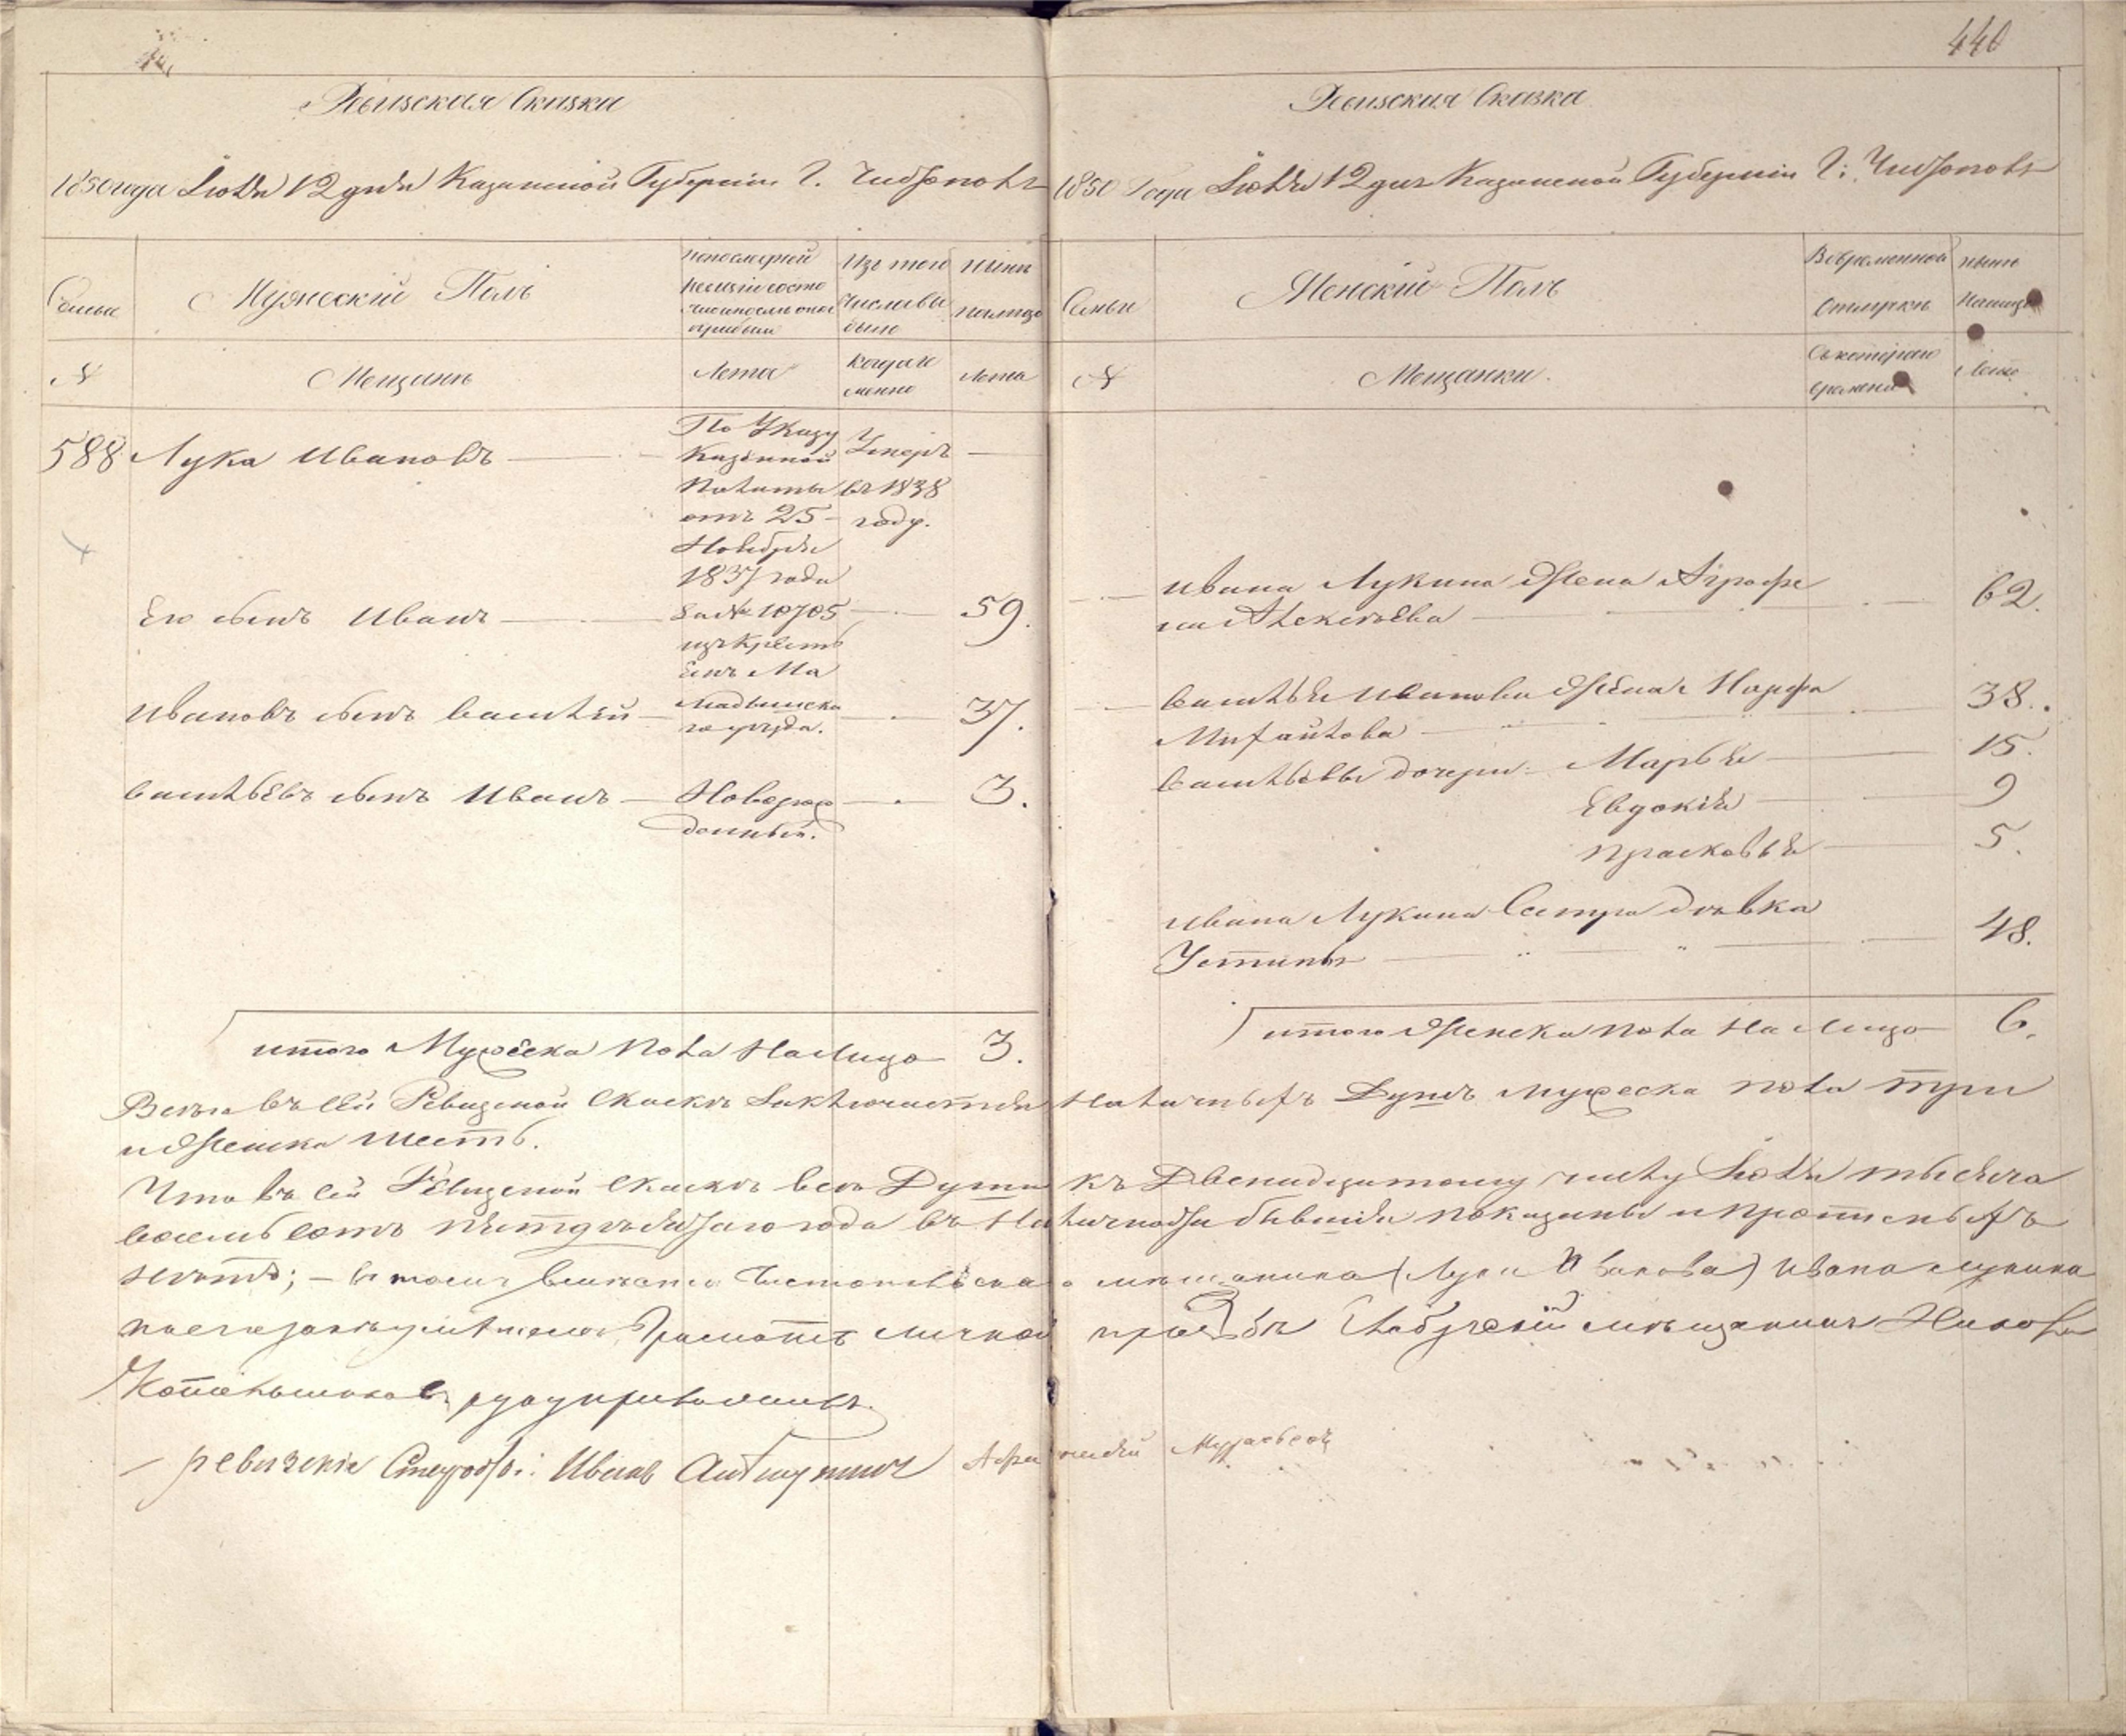 440
Ревизская Сказка
1850 года Июля 12 дня Казанской Губернии Г. Чистополь
Семьи
Мужеский Полъ
По последней ревизiи состояло и после оной прибыло
Изъ того числа выбыло
Ныне налицо
№
Мещане
Лета
Когда именно
Лета
588 Лука Ивановъ
По Указу
Казенной
Палаты
отъ 25
Ноября
1837 года
За № 10705
изъ Крестьянъ
Умеръ
въ 1838
году.
Его сынъ Иванъ
59.
Ивановъ сынъ Василей
уезда.
37.
Васильевъ сынъ Иванъ
Новорож
денный.
3.
итого Мужеска пола На лицо 3.
Ревизская Сказка
1850 Года Июля 12 дня Казанской Губернiи Г. Чистополь
Семьи
Женскiй Полъ
Во временной отлучке
Ныне Налицо
№
Мещанки.
Съ котораго времени
Лета
Ивана Лукина Жена Аграфе
на Алексеева
62.
Василья Иванова Жена Марфа
Михайлова
38.
Васильевы дочери Марья
15.
Евдокия
9
Прасковья
5.
Ивана Лукина Сестра девка
Устинья
48.
итого Женска пола На Лицо 6.
Всего въ сей Ревизской Сказке Заключается Наличныхъ Душъ мужеска пола три
и Женска шесть.
Что въ сей Ревизской Сказке все Души къ Двенадцатому числу Июля тысяча
восемь сотъ пятдесятаго года въ Наличности бывшiя показаны и прописныхъ
нетъ; – въ томъ Чистопольскаго мещанина (Луки Иванова) Ивана Лукина
по его неуменiю Грамоте личной прозьбе мещанинъ
руку приложилъ.
ревизские Иванъ